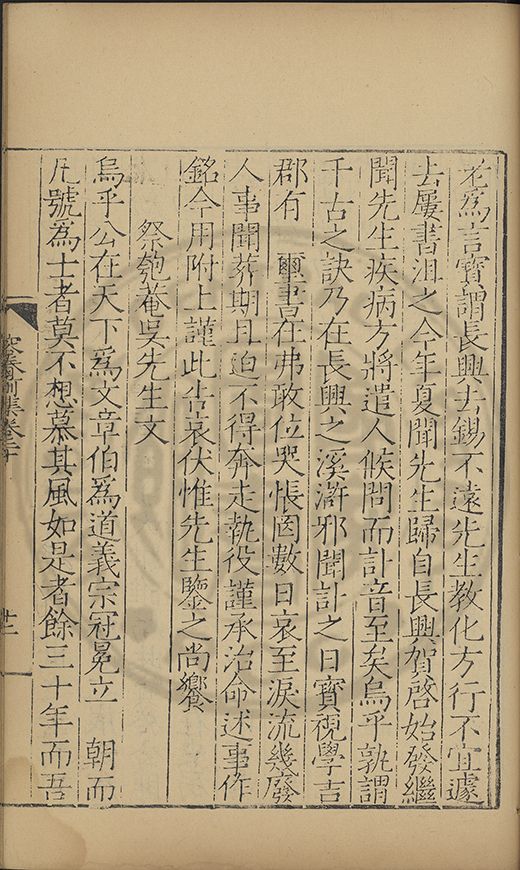 爲言寶謂長興去錫不遠先生教化方行不宜遽
去屢書沮之今年夏聞先生歸自長興賀啓始發繼
聞先生疾病方將遣人候問而訃音至矣烏乎孰謂
千古之訣乃在長興之溪滸邪聞訃之日寶視學吉
郡有　爾書在弗敢位哭悵囱數日哀至淚流幾廢
人事聞葬期且迫不得奔走執役謹承治命述事作
銘今用附上謹此告哀伏惟先生鑒之尚饗
祭匏菴吳先生文
烏乎公在天下爲文章伯爲道義宗冠冕立　朝而
凡號爲士者莫不想慕其風如是者餘三十年而吾
容春前集卷二十
廿二